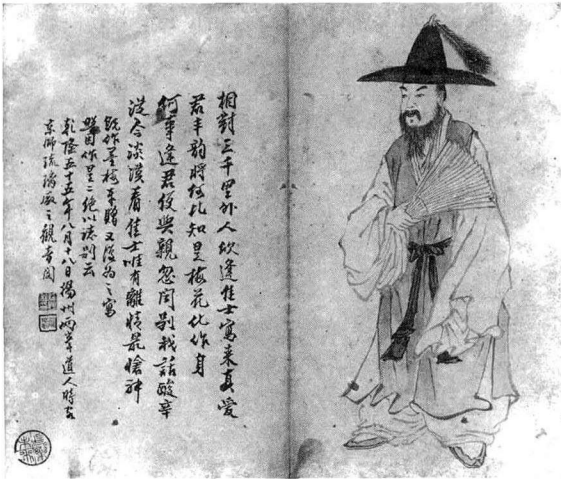 相對三千里外人欣逢佳士寫來真愛
君丰韵將何比知是梅花化作身
何事逢君便與親忽聞別我話酸辛
從今淡漠看佳士唯有離情最愴神
既作墨梅奉贈又復為之寫
照因作是二絕以誌別云
乾隆五十五年八月十八日揚州兩峯道人時客
京師琉璃廠之觀音閣